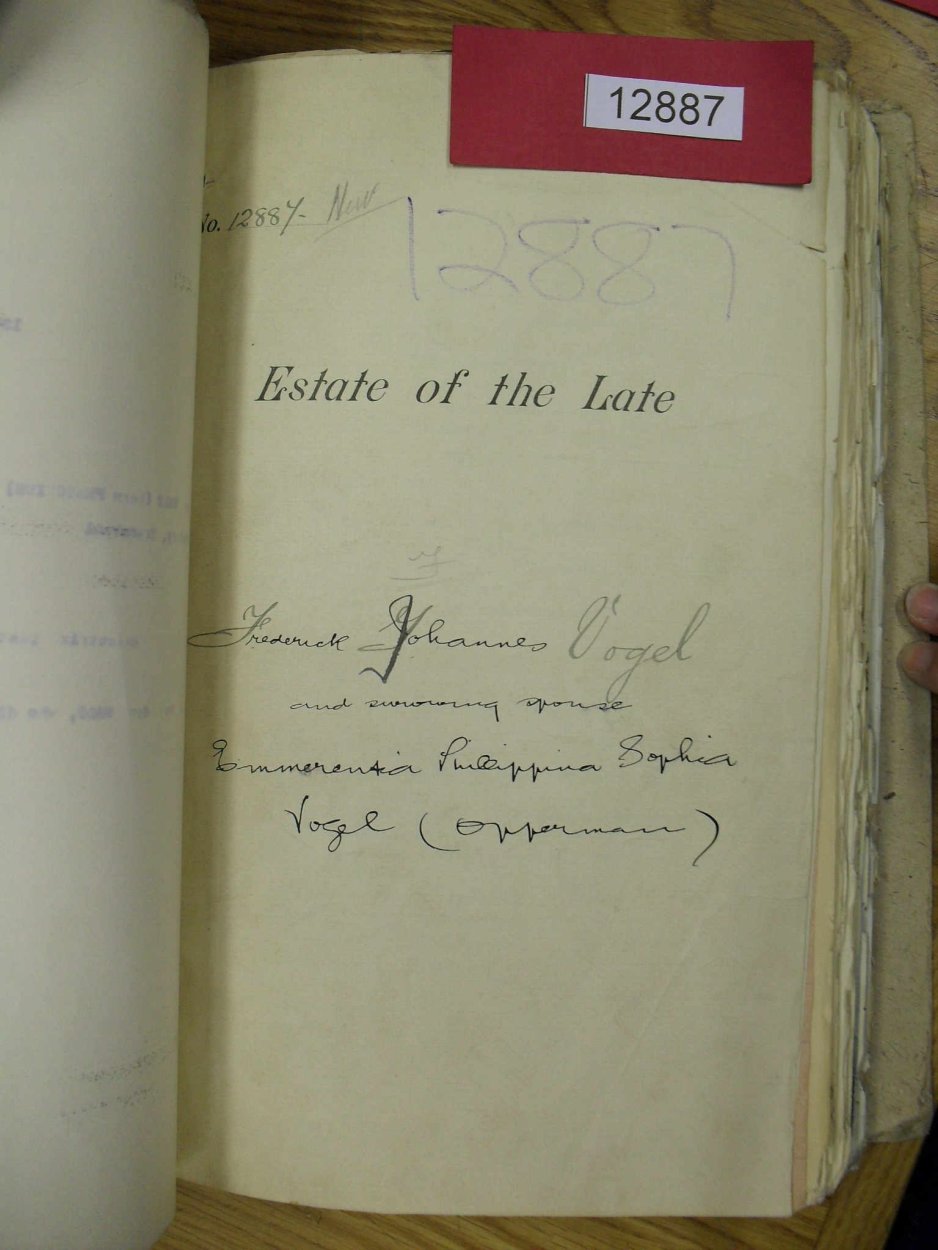 12887
No. 12887 New
12887
Estate of the Late
F
Frederick Johannes Vogel
and surviving spouse
Emmerentia Philippina Sophia
Vogel (Opperman)